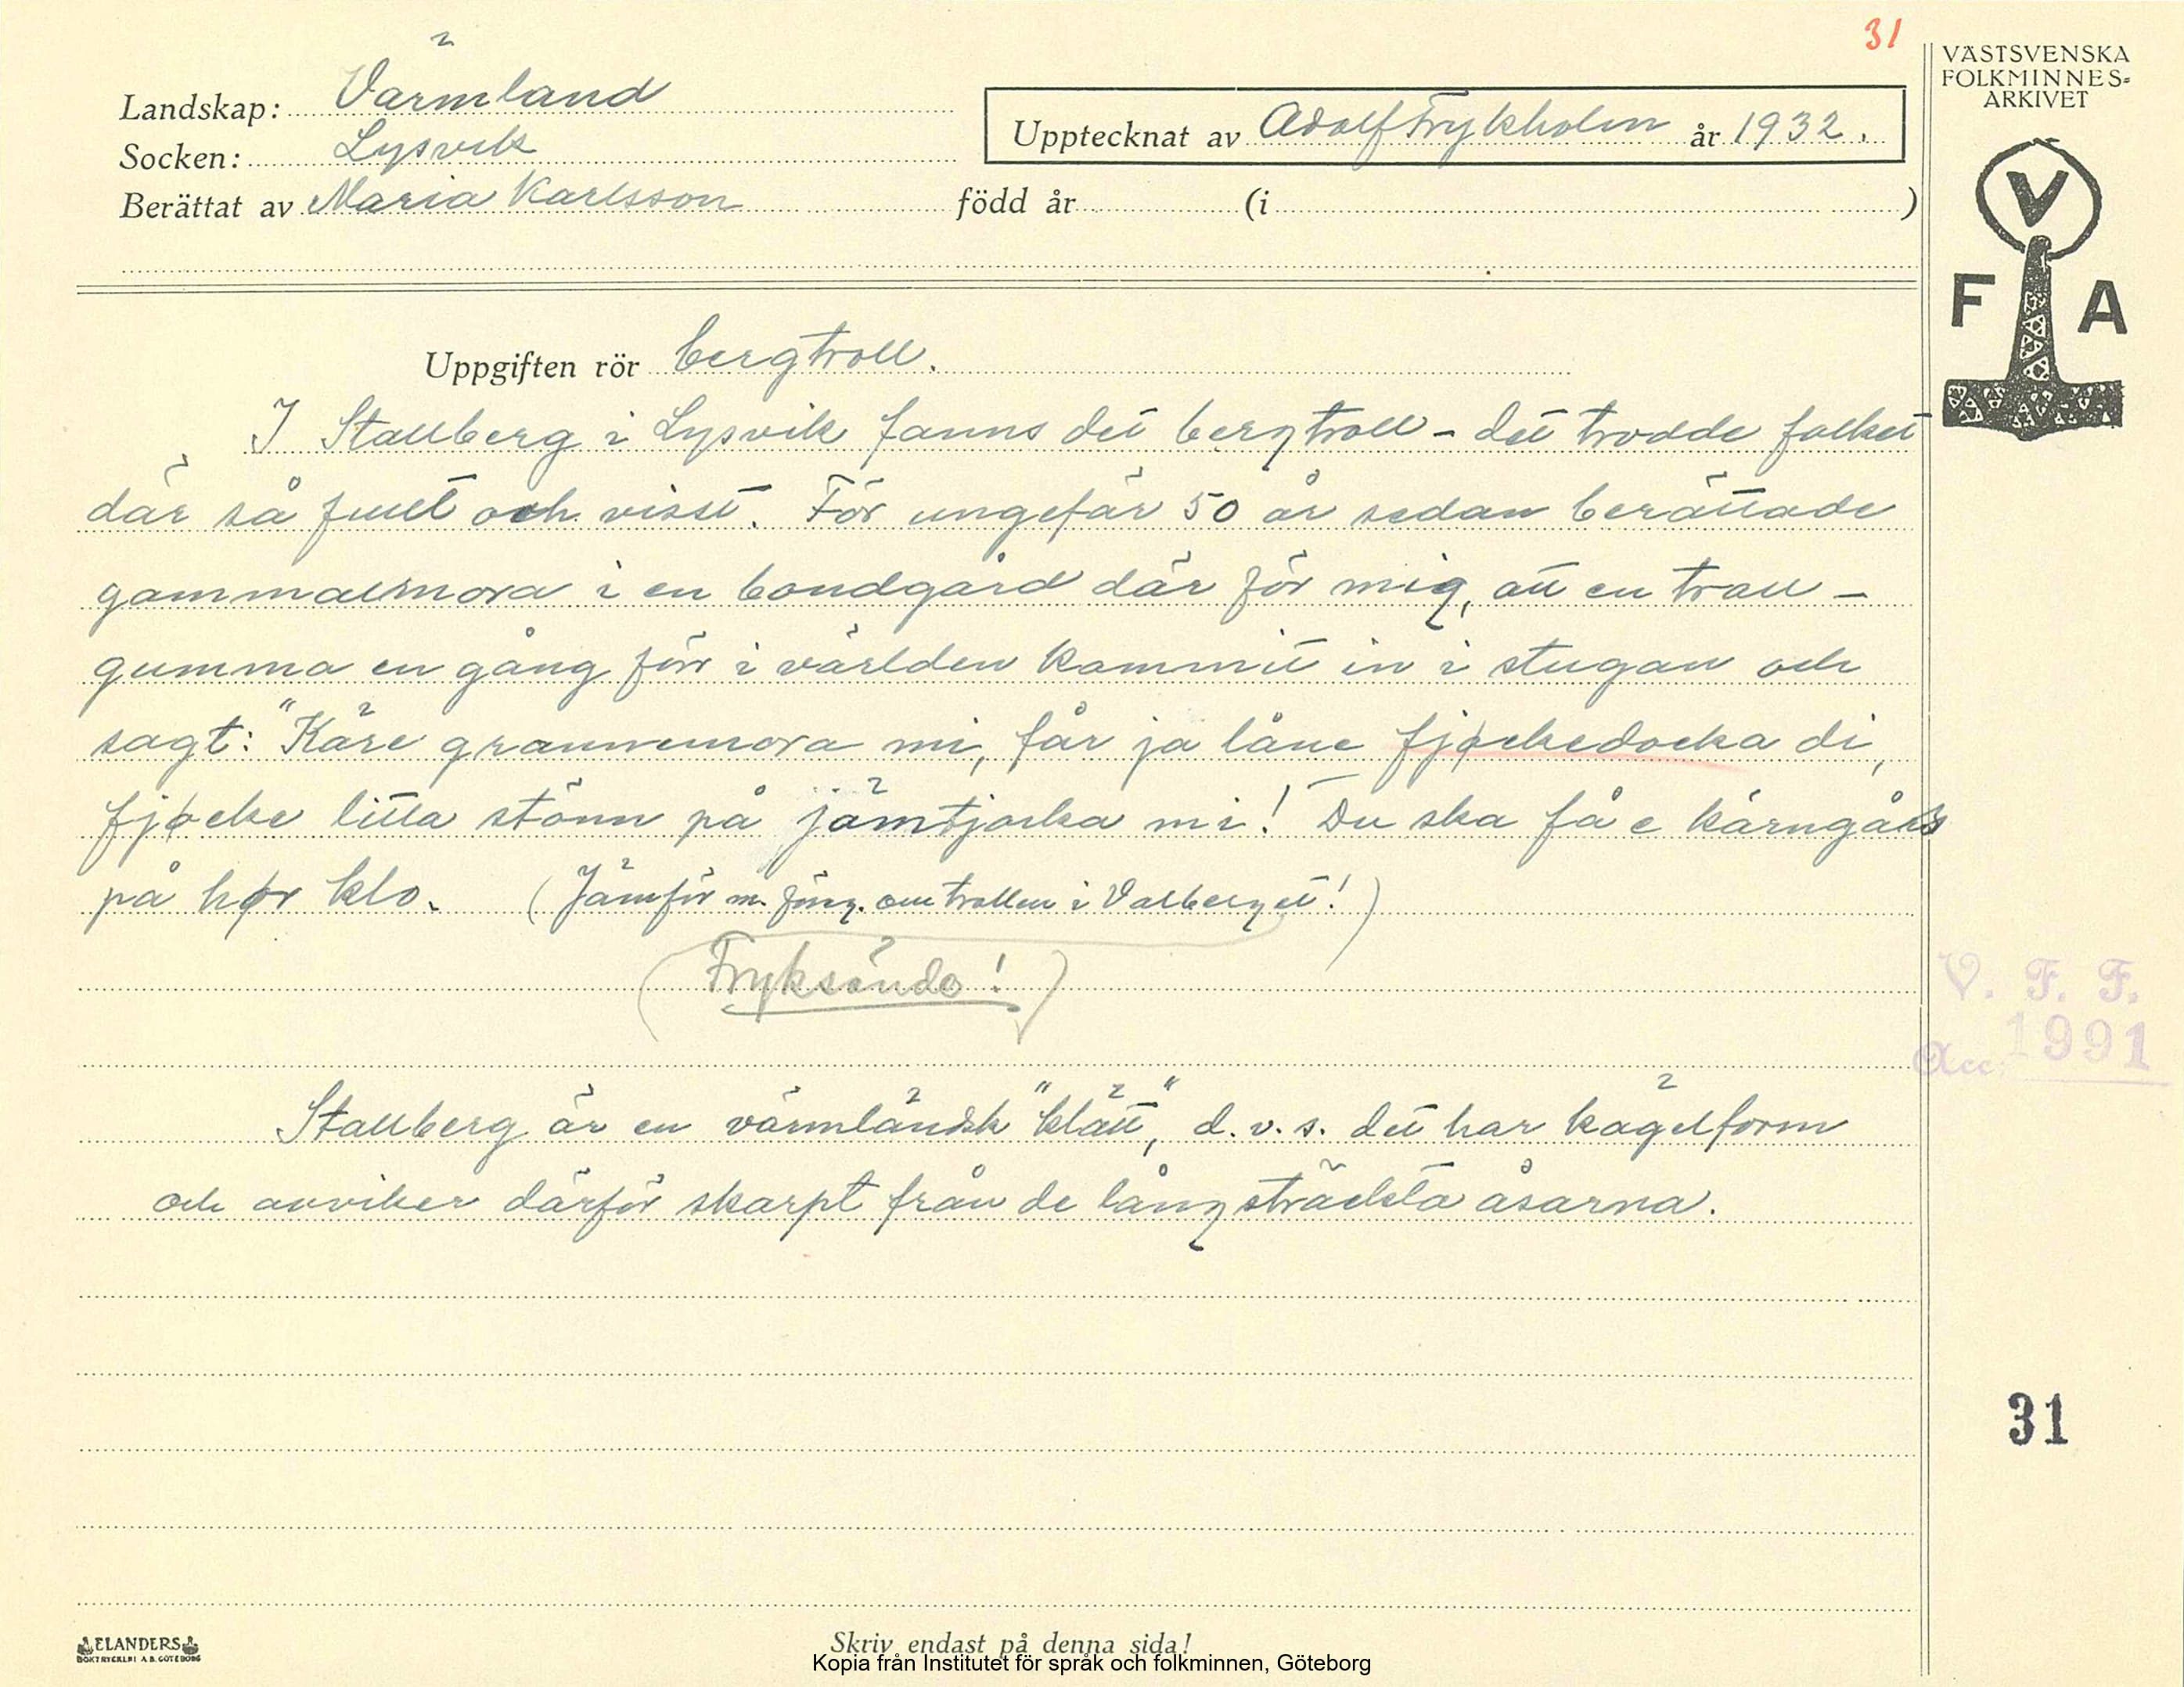 31
VÄSTSVENSKA
FOLKMINNES-
ARKIVET
V
F A
Landskap: Värmland
Socken: Lysvik
Berättat av Maria Karlsson född år (i )
Upptecknat av Adolf Frykholm år 1932.
Uppgiften rör bergtroll.
I Stallberg i Lysvik fanns det bergtroll – det trodde folket
där så fullt och visst. För ungefär 50 år sedan berättade
gammalmora i en bondgård där för mig, att en troll-
gumma en gång förr i världen kommit in i stugan och
sagt: "Käre grannmora mi, får ja låne fjøckedocka di,
fjøcke litta stönn på jämtjocka mi! Du ska få e kärngårs
på hør klo. (Jämför m. förteg. om trollen i Valberget!)
(Fryksände!)
V. F. F.
Acc. 1991
Stallberg är en värmländsk "klätt", d.v.s. det har kägelform
och avviker därför skarpt från de långsträckta åsarna.
31
ELANDERS
BOKTRYCKERI A.B. GÖTEBORG
Skriv endast på denna sida!
Kopia från Institutet för språk och folkminnen, Göteborg